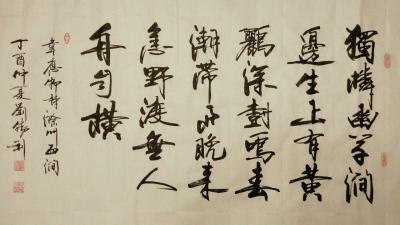 獨憐幽草澗
邊生上有黃
鸝深樹鳴春
潮帶雨晚來
急野渡無人
舟自橫
韋應物詩滁州西澗
丁酉仲夏劉利